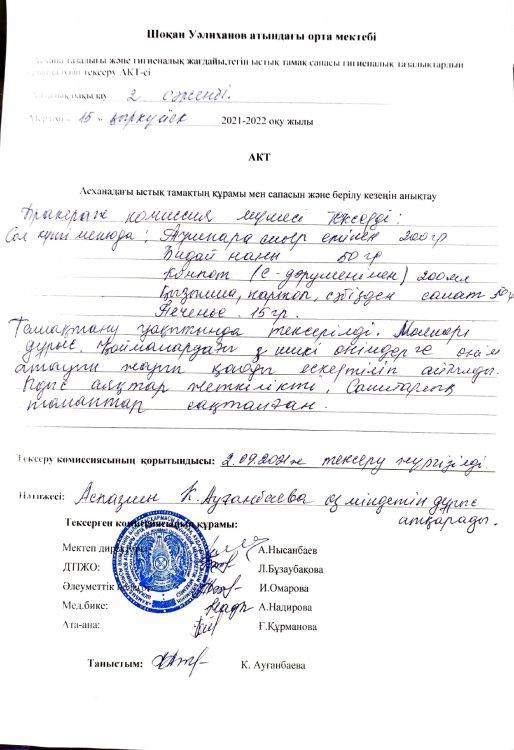 Шоқан Уәлиханов атындағы орта мектебі
тазалығы және гигиеналық жағдайы,тегін ыстық тамақ сапасы гигиеналық тазалықтардың
тексеру АКТ-сі
2 сәрсенбі.
« 15 » қыркүйек 2021-2022 оқу жылы
АКТ
Асханадағы ыстық тамақтың құрамы мен сапасын және берілу кезеңін анықтау
Бракераж комиссия мүшесі тексерді:
Сол күнгі менюда: сиыр етінен 200гр
Бидай наны 50гр
Компот (С-дәруменімен) 200мл
Қызылша, картоп, сәбізден салат 50
Печенье 15гр.
Тамақтану уақытында тексерілді. Мәзірі
дұрыс. Қоймалардағы өнімдерге
жарты ескертіліп айтылды.
Ыдыс аяқтар жеткілікті, Санитарлық
талаптар сақталған.
Тексеру комиссиясының қорытындысы: 2.09.2021ж тексеру жүргізілді
Нәтижесі: Аспазшы К.Ауғанбаева өз міндетін дұрыс
атқарады.
Тексерген комиссиясының құрамы:
Мектеп директоры А.Нысанбаев
ДТІЖО: Л.Бұзаубакова
Әлеуметтік И.Омарова
Мед.бике: А.Надирова
Ата-ана: Ғ.Құрманова
Таныстым: К. Ауғанбаева